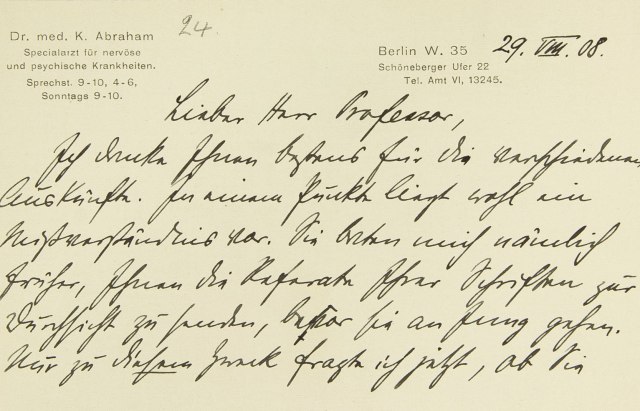 Dr. med. K. Abraham
Specialarzt für nervöse
und psychische Krankheiten.
Sprechst. 9-10, 4-6,
Sonntags 9-10.
24.
Berlin W. 35
Schöneberger Ufer 22
Tel. Amt VI, 13245.
29. VIII. 08.
Lieber Herr Professor,
Ich danke Ihnen bestens für die verschiedenen
Auskünfte. In einem Punkte liegt wohl ein
Mißverständnis vor. Sie baten mich nämlich
früher, Ihnen die Referate Ihrer Schriften zur
Durchsicht zu senden, bevor sie an Jung gehen.
Nur zu diesem Zweck fragte ich jetzt, ob Sie